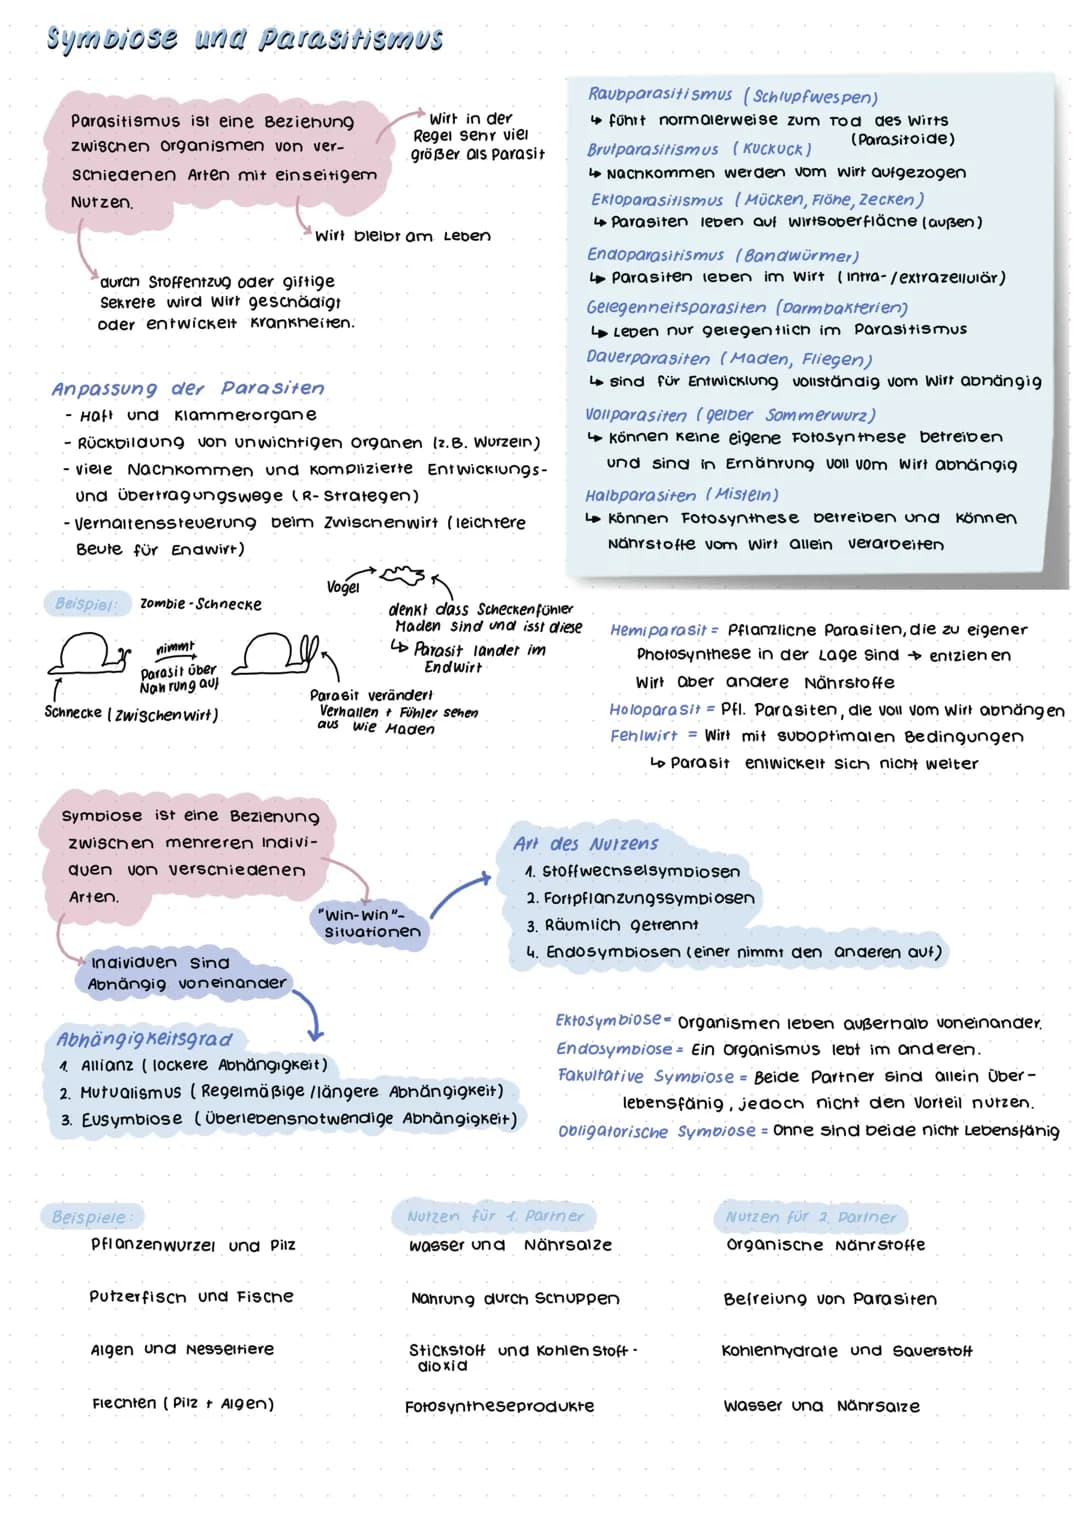 Symbiose und Parasitismus
Parasitismus ist eine Beziehung
zwischen Organismen von ver-
schiedenen Arten mit einseitigem
Nutzen.
Wirt in der
Regel sehr viel
größer als Parasit
Wirt bleibt am Leben
durch Stoffentzug oder giftige
Sekrete wird Wirt geschädigt
oder entwickelt Krankheiten.
Raubparasitismus (Schlupfwespen)
↳ führt normalerweise zum Tod des Wirts
(Parasitoide)
Brutparasitismus (Kuckuck)
↳ Nachkommen werden vom Wirt aufgezogen
Ektoparasitismus (Mücken, Flöhe, Zecken)
↳ Parasiten leben auf Wirtsoberfläche (außen)
Endoparasitismus (Bandwürmer)
↳ Parasiten leben im Wirt (Intra-/extrazellulär)
Gelegenheitsparasiten (Darmbakterien)
↳ Leben nur gelegentlich im Parasitismus
Dauerparasiten (Maden, Fliegen)
↳ sind für Entwicklung vollständig vom Wirt abhängig
Vollparasiten (gelber Sommerwurz)
↳ können keine eigene Fotosynthese betreiben
und sind in Ernährung voll vom Wirt abhängig
Halbparasiten (Misteln)
↳ können Fotosynthese betreiben und können
Nährstoffe vom Wirt allein verarbeiten
Anpassung der Parasiten
- Haft und Klammerorgane
- Rückbildung von unwichtigen Organen (z.B. Wurzeln)
- viele Nachkommen und komplizierte Entwicklungs-
und Übertragungswege (R-Strategen)
- Verhaltenssteuerung beim Zwischenwirt (leichtere
Beute für Endwirt)
Beispiel: Zombie-Schnecke
Vogel
denkt dass Scheckenfühler
Maden sind und isst diese
↳ Parasit landet im
Endwirt
nimmt
Parasit über
Nahrung auf
Schnecke (Zwischenwirt)
Parasit verändert
Verhalten + Fühler sehen
aus wie Maden
Hemiparasit = Pflanzliche Parasiten, die zu eigener
Photosynthese in der Lage sind → entziehen
Wirt aber andere Nährstoffe
Holoparasit = Pfl. Parasiten, die voll vom Wirt abhängen
Fehlwirt = Wirt mit suboptimalen Bedingungen
↳ Parasit entwickelt sich nicht weiter
Symbiose ist eine Beziehung
zwischen mehreren Indivi-
duen von verschiedenen
Arten.
"Win-Win"-
situationen
Individuen sind
Abhängig voneinander
Art des Nutzens
1. Stoffwechselsymbiosen
2. Fortpflanzungssymbiosen
3. Räumlich getrennt
4. Endosymbiosen (einer nimmt den anderen auf)
Abhängigkeitsgrad
1. Allianz (lockere Abhängigkeit)
2. Mutualismus (Regelmäßige/längere Abhängigkeit)
3. Eusymbiose (Überlebensnotwendige Abhängigkeit)
Ektosymbiose = Organismen leben außerhalb voneinander.
Endosymbiose = Ein Organismus lebt im anderen.
Fakultative Symbiose = Beide Partner sind allein über-
lebensfähig, jedoch nicht den Vorteil nutzen.
Obligatorische Symbiose = Ohne sind beide nicht Lebensfähig
Beispiele: Nutzen für 1. Partner Nutzen für 2. Partner
Pflanzenwurzel und Pilz Wasser und Nährsalze Organische Nährstoffe
Putzerfisch und Fische Nahrung durch Schuppen Befreiung von Parasiten
Algen und Nesseltiere Stickstoff und Kohlenstoff- Kohlenhydrate und Sauerstoff
dioxid
Flechten (Pilz + Algen) Fotosyntheseprodukte Wasser und Nährsalze